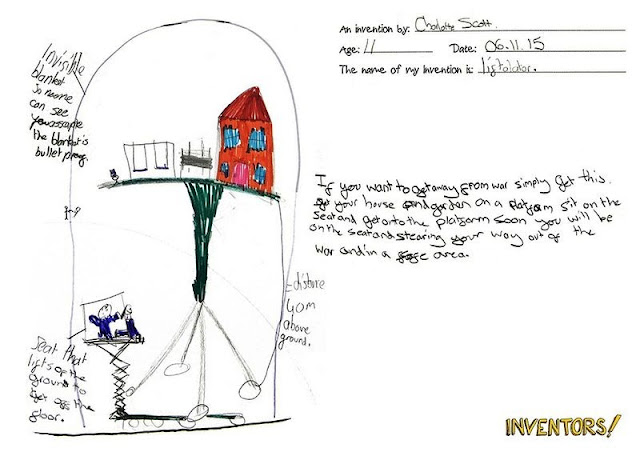 An invention by: Charlotte Scott.
Age: 11 Date: 06.11.15
The name of my invention is: Liftolator.
Invisible
blanket
so noone
can see
the blanket is
bullet proof.
If you want to get away from war simply get this.
your house and garden on a platform sit on the
seat and get onto the platform soon you will be
on the seat and stearing your way out of the
war and in a area.
40m
above
ground.
Seat that
lifts of the
ground to
get off the
floor.
INVENTORS!